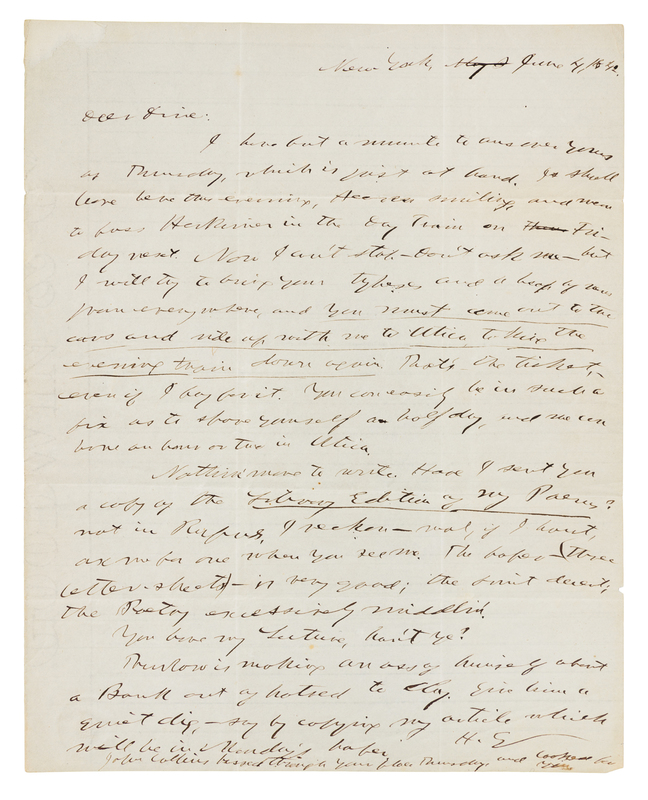 New York, ~~May 2~~ June 4, 1842.
Dear Dine:
I have but a minute to answer yours
as Thursday, which is just at hand. I shall
leave here this evening, Heaven smiling, and mean
to pass Herkimer in the Day Train on ~~Thurs~~ Fri-
day next. Now I can't stop—Don't ask me—but
I will try to bring your and a heap of news
from everywhere, and you must come out to the
cars and ride up with me to Utica, to take the
evening train down again. That's the ticket,
even if I pay for it. You can easily be in such a
fix as to shove yourself a half day, and we can
have an hour or two in Utica.
Nothin' more to write. Have I sent you
a copy of the Edition of my Poems?
not in I reckon—well, if I han't,
ax me for one when you see me. The paper (three
letter-sheets)—is very good; the print decent;
the Poetry excessively middlin'.
You have my Lecture, han't ye?
Thurlow is making an ass of himself about
a Bank out of hatred to Clay. Give him a
quiet dig,—say by copying my article which
will be in Monday's paper. H. G.
John Collins passed through your place Thursday and looked for you